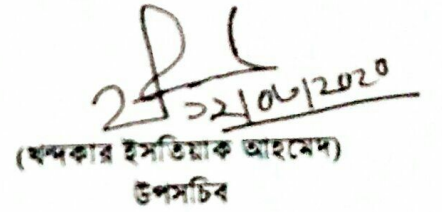 ১২/০৮/2020
(খন্দকার ইসতিয়াক আহমেদ)
উপসচিব